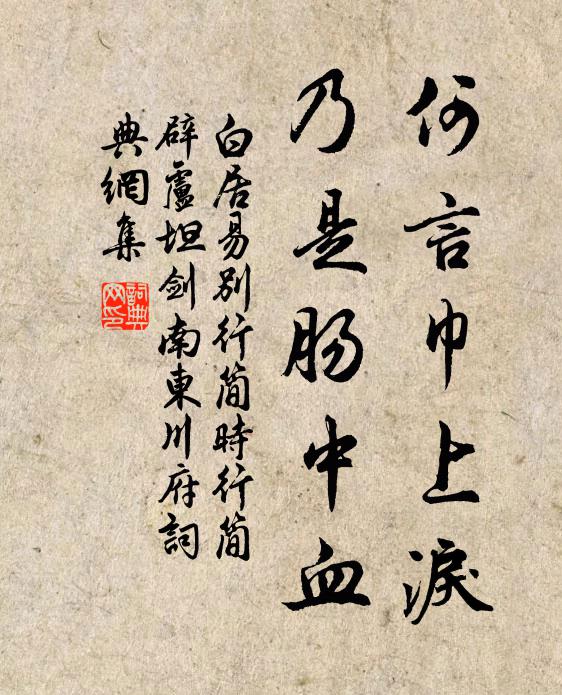 何言巾上淚
乃是肠中血
白居易別行简時行简
辟盧坦劍南東川府詞
典網集
詞典
网印